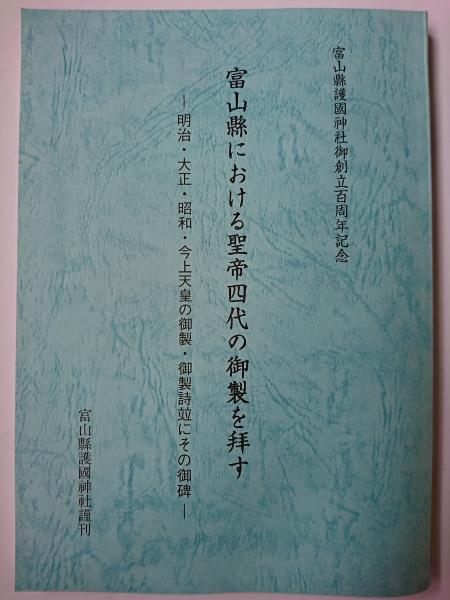 富山縣護國神社御創立百周年記念
富山縣における聖帝四代の御製を拝す
―明治・大正・昭和・今上天皇の御製・御製詩竝にその御碑―
富山縣護國神社謹刊